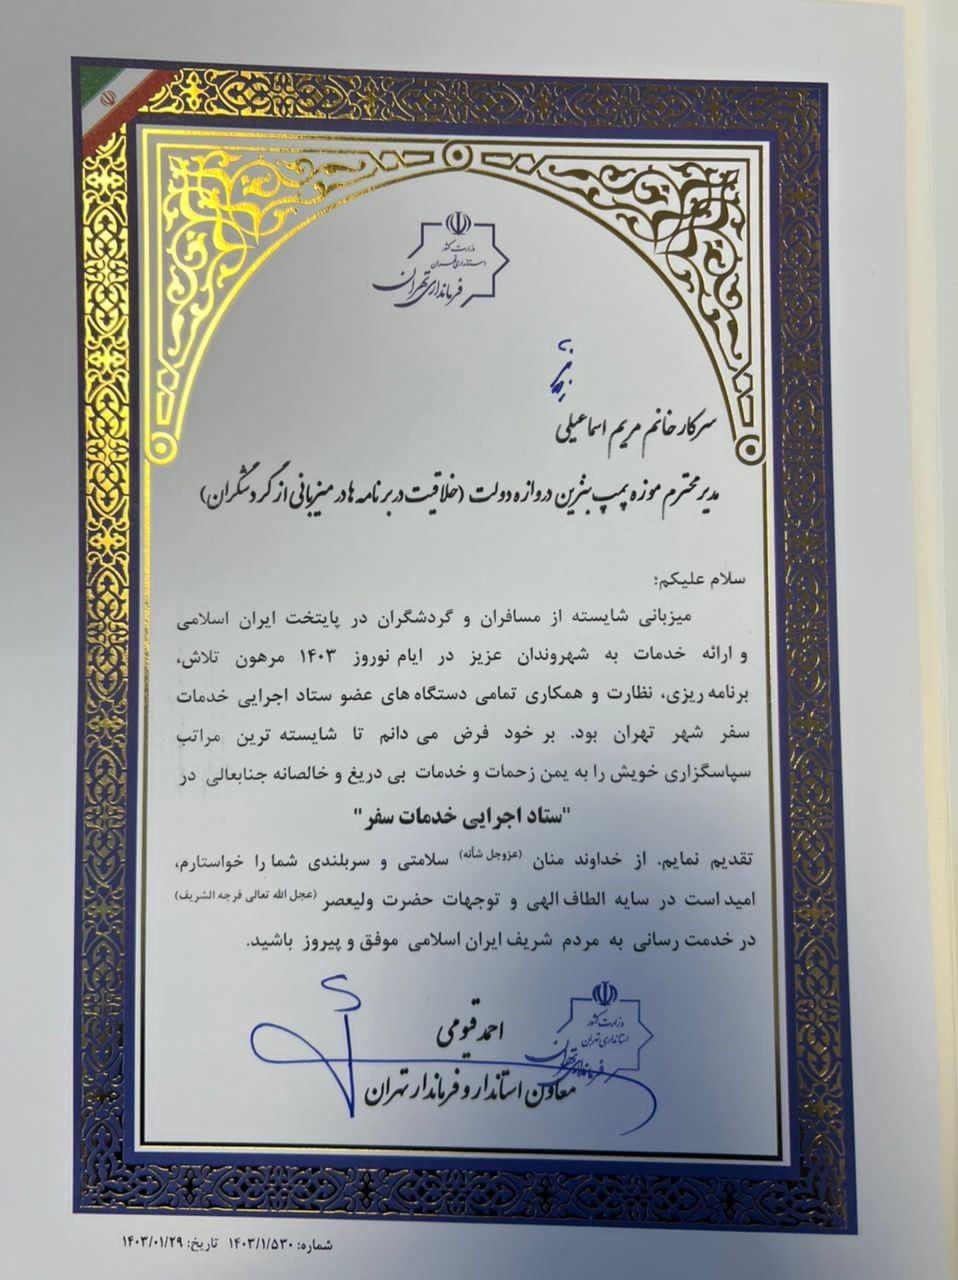 وزارت کشور
استانداری تهران
فرمانداری تهران
سرکار خانم مریم اسماعیلی
مدیر محترم موزه پمپ بنزین دروازه دولت (خلاقیت در برنامه ها در میزبانی از گردشگران)
سلام علیکم؛
میزبانی شایسته از مسافران و گردشگران در پایتخت ایران اسلامی
و ارائه خدمات به شهروندان عزیز در ایام نوروز ۱۴۰۳ مرهون تلاش،
برنامه ریزی، نظارت و همکاری تمامی دستگاه های عضو ستاد اجرایی خدمات
سفر شهر تهران بود. بر خود فرض می دانم تا شایسته ترین مراتب
سپاسگزاری خویش را به یمن زحمات و خدمات بی دریغ و خالصانه جنابعالی در
"ستاد اجرایی خدمات سفر"
تقدیم نمایم. از خداوند منان (عزوجل شأنه) سلامتی و سربلندی شما را خواستارم،
امید است در سایه الطاف الهی و توجهات حضرت ولیعصر (عجل الله تعالی فرجه الشریف)
در خدمت رسانی به مردم شریف ایران اسلامی موفق و پیروز باشید.
وزارت کشور
استانداری تهران
فرمانداری تهران
احمد قیومی
معاون استاندار و فرماندار تهران
شماره: ۱۴۰۳/۱/۵۳۰ تاریخ: ۱۴۰۳/۰۱/۲۹